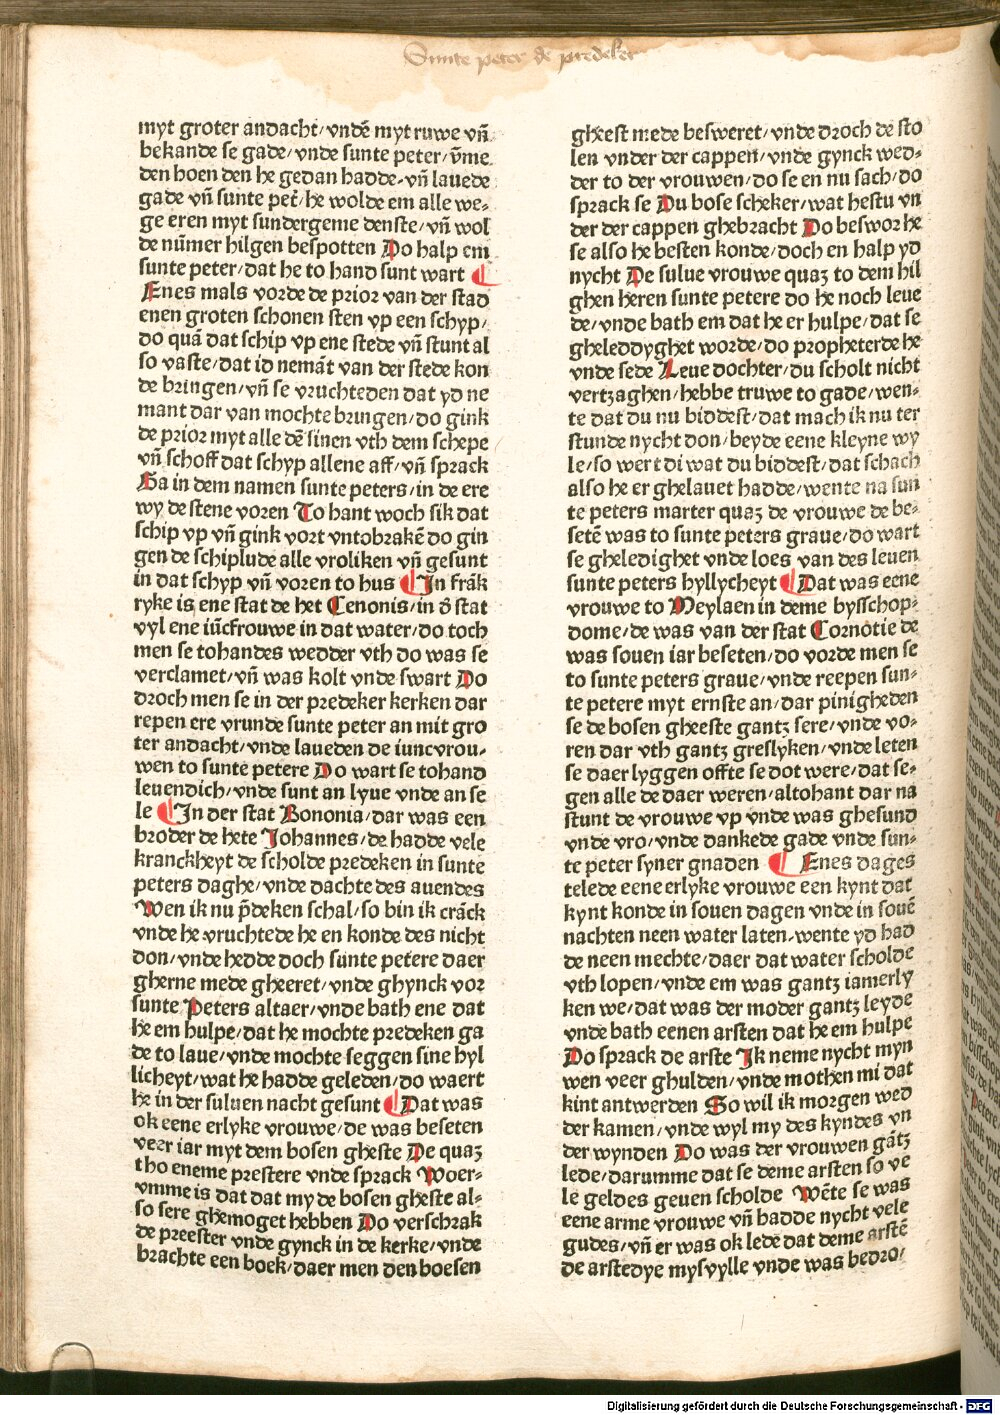 Sunte peter de predeker
myt groter andacht/vndē myt ruwe vn̄
bekande se gade/vnde sunte peter/v̄me
den hoen den he gedan hadde/vn̄ lauede
gade vn̄ sunte peť/he wolde em alle we⸗
ge eren myt sundergeme denste/vn̄ wol
de nūmer hilgen bespotten Do halp em
sunte peter/dat he to hand sunt wart ¶
Enes mals vorde de prior van der stad
enen groten schonen sten vp een schyp/
do quā dat schip vp ene stede vn̄ stunt al
so vaste/dat id nemāt van der stede kon
de bringen/vn̄ se vruchteden dat yd ne
mant dar van mochte bringen/do gink
de prior myt alle dē sinen vth dem schepe
vn̄ schoff dat schyp allene aff/vn̄ sprack
Ga in dem namen sunte peters/in de ere
wy de stene voren To hant woch sik dat
schip vp vn̄ gink vort vntobrakē do gin
gen de schiplude alle vroliken vn̄ gesunt
in dat schyp vn̄ voren to hus ¶ In frāk
ryke is ene stat de het Cenonis/in d̄ stat
vyl ene iūcfrouwe in dat water/do toch
men se tohandes wedder vth do was se
verclamet/vn̄ was kolt vnde swart Do
droch men se in der predeker kerken dar
repen ere vrunde sunte peter an mit gro
ter andacht/vnde laueden de iuncvrou⸗
wen to sunte petere Do wart se tohand
leuendich/vnde sunt an lyue vnde an se
le ¶ In der stat Bononia/dar was een
broder de hete Johannes/de hadde vele
kranckheyt de scholde predeken in sunte
peters daghe/vnde dachte des auendes
Wen ik nu p̄deken schal/so bin ik crāck
vnde he vruchtede he en konde des nicht
don/vnde hedde doch sunte petere daer
gherne mede gheeret/vnde ghynck vor
sunte Peters altaer/vnde bath ene dat
he em hulpe/dat he mochte predeken ga
de to laue/vnde mochte seggen sine hyl
licheyt/wat he hadde geleden/do waert
he in der suluen nacht gesunt ¶ Dat was
ok eene erlyke vrouwe/de was beseten
veer iar myt dem bosen gheste De quaz
tho eneme prestere vnde sprack Woer⸗
vmme is dat dat my de bosen gheste al⸗
so sere ghemoget hebben Do verschrak
de preester vnde gynck in de kerke/vnde
brachte een boek/daer men den boesen
gheest mede besweret/vnde droch de sto
len vnder der cappen/vnde gynck wed⸗
der to der vrouwen/do se en nu sach/do
sprack se Du bose scheker/wat hestu vn
der der cappen ghebracht Do beswor he
se also he besten konde/doch en halp yd
nycht De sulue vrouwe quaz to dem hil
ghen heren sunte petere do he noch leue
de/vnde bath em dat he er hulpe/dat se
gheleddyghet worde/do propheterde he
vnde sede Leue dochter/du scholt nicht
vertzaghen/hebbe truwe to gade/wen⸗
te dat du nu biddest/dat mach ik nu ter
stunde nycht don/beyde eene kleyne wy
le/so wert di wat du biddest/dat schach
also he er ghelauet hadde/wente na sun
te peters marter quaz de vrouwe de be⸗
setē was to sunte peters graue/do wart
se gheledighet vnde loes van des leuen
sunte peters hyllycheyt ¶ Dat was eene
vrouwe to Meylaen in deme bysschop⸗
dome/de was van der stat Cornotie de
was souen iar beseten/do vorde men se
to sunte peters graue/vnde reepen sun⸗
te petere myt ernste an/dar pinigheden
se de bosen gheeste gantz sere/vnde vo⸗
ren dar vth gantz greslyken/vnde leten
se daer lyggen offte se dot were/dat se⸗
gen alle de daer weren/altohant dar na
stunt de vrouwe vp vnde was ghesund
vnde vro/vnde dankede gade vnde sun⸗
te peter syner gnaden ¶ Enes dages
telede eene erlyke vrouwe een kynt dat
kynt konde in souen dagen vnde in souē
nachten neen water laten/wente yd had
de neen mechte/daer dat water scholde
vth lopen/vnde em was gantz iamerly
ken we/dat was der moder gantz leyde
vnde bath eenen arsten dat he em hulpe
Do sprack de arste Ik neme nycht myn
wen veer ghulden/vnde mothen mi dat
kint antwerden So wil ik morgen wed
der kamen/vnde wyl my des kyndes vn
der wynden Do was der vrouwen gātz
lede/darumme dat se deme arsten so ve
le geldes geuen scholde Wēte se was
eene arme vrouwe vn̄ hadde nycht vele
gudes/vn̄ er was ok lede dat deme arstē
de arstedye mysvylle vnde was bedro/
Digitalisierung gefördert durch die Deutsche Forschungsgemeinschaft - DFG